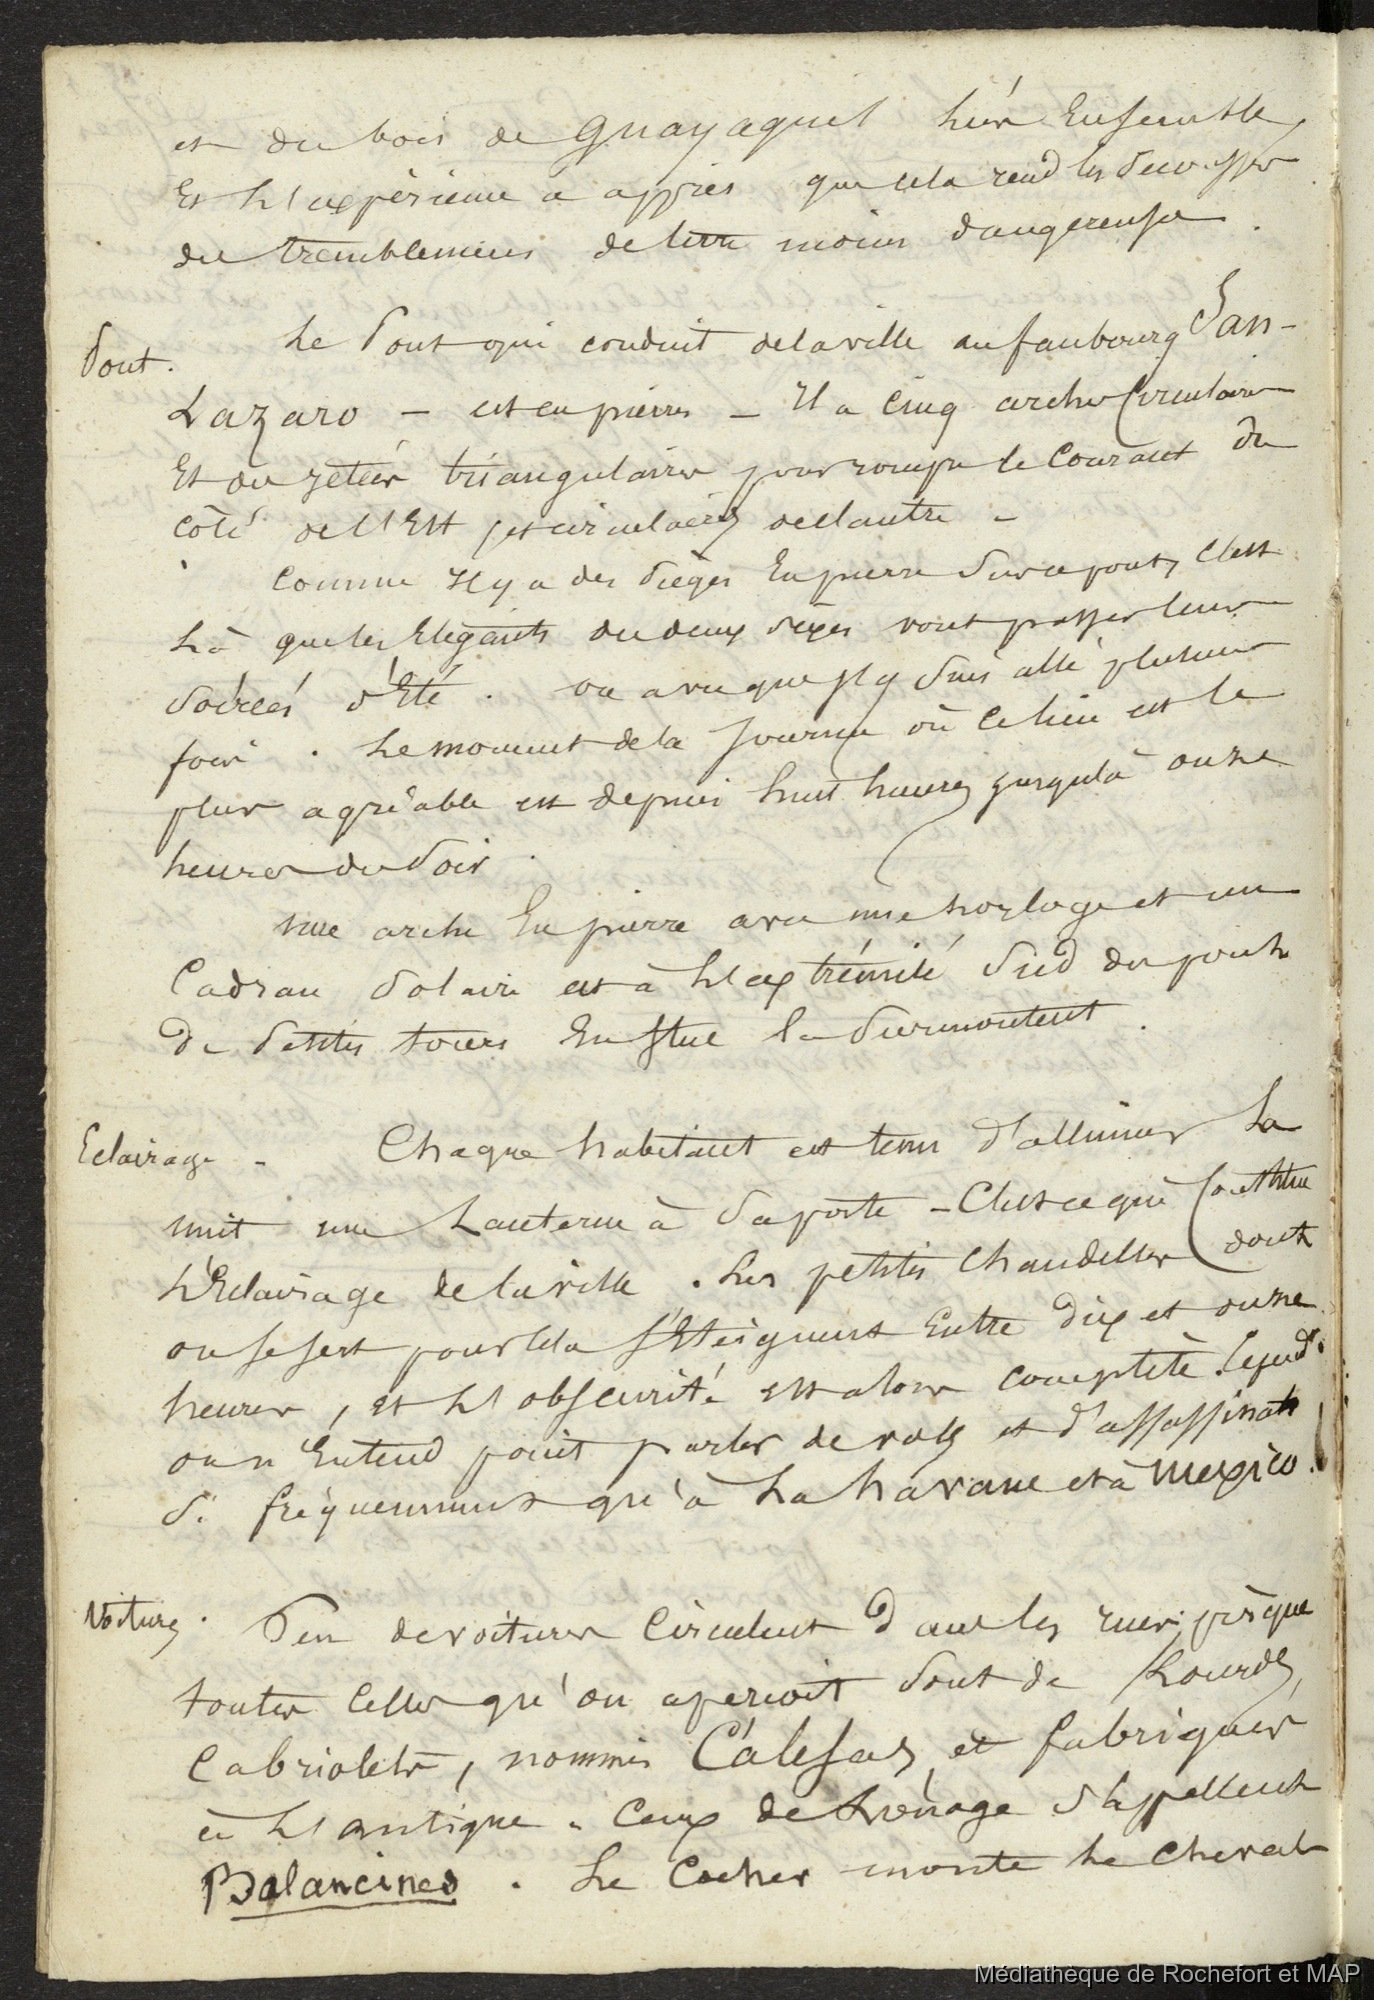 et du bois de Guayaquil liés Ensemble,
Et L'expérience a appris que cela rend les secousses
des tremblemens de terre moins dangereuses.
Pont. Le Pont qui conduit de la ville au faubourg San-
Lazaro – est en pierres – Il a Cinq arches Circulaires
Et des jetées triangulaires pour rompre le Courant du
Côté de l'Est, et circulaires de l'autre –
Comme Il y a des sièges En pierre sur ce pont, C'est
Là que les Elégants des deux sèxes vont passer leurs
soirées d'Eté. on a vu que J'y suis allé plusieurs
fois. Le moment de la Journée où ce lieu est le
plus agréable est depuis huit heures jusqu'à onze
heures du soir.
Une arche En pierre avec une horloge et un
Cadran Solaire est à L'extrémité Sud du pont
De petites tours En Stuc la surmontent.
Eclairage – Chaque habitant est tenu d'allumer La
nuit une Lanterne à sa porte – C'est ce qui Constitue
L'Eclairage de la ville. Les petites Chandelles dont
on se sert pour cela s'Eteignent Entre dix et onze
heures, et L'obscurité est alors complète. Cepend.t
on n'Entend point parler de vols et d'assassinats
si fréquemment qu'à La havane et à Mexico!
Voitures. Peu de voitures Circulent Dans les rues; presque
toutes Celles qu'on aperçoit sont de Lourds,
Cabriolets, nommés Calesas, et fabriqués
à L'antique. Ceux de Louage s'appellent
Balancines. Le Cocher monte Le Cheval
Médiathèque de Rochefort et MAP